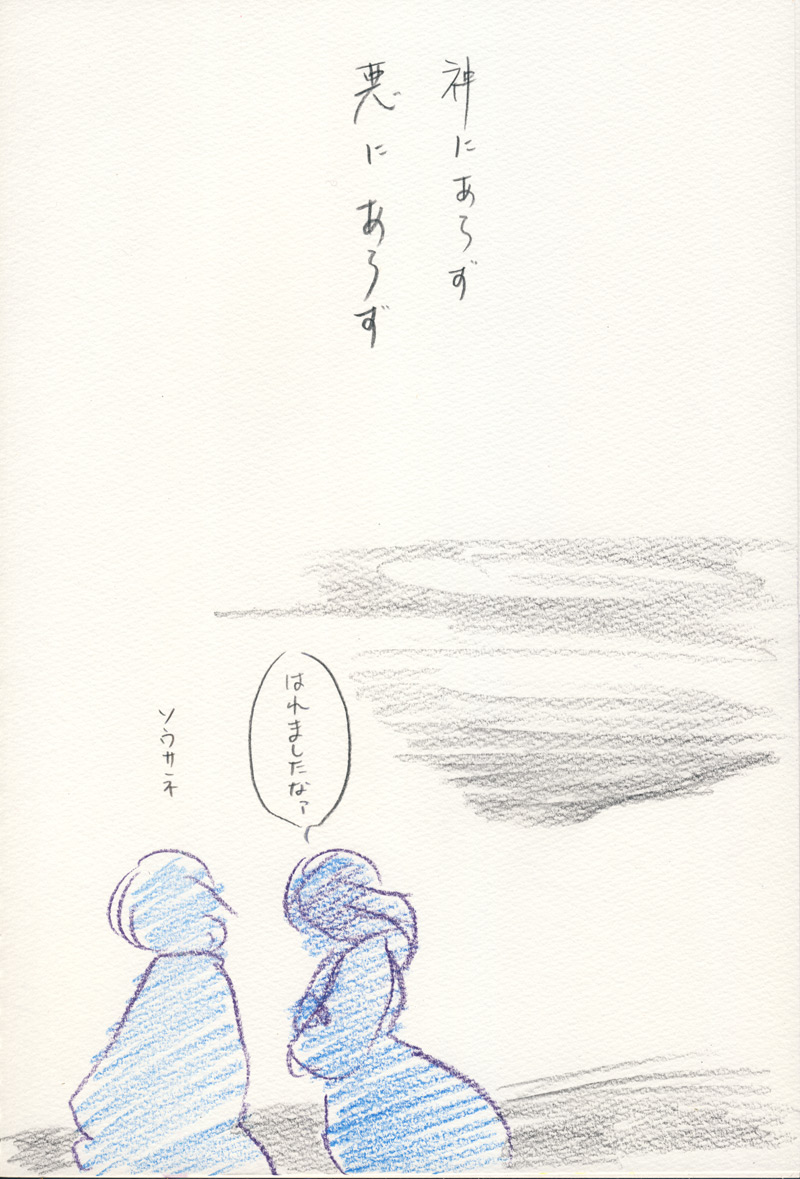 神にあらず
悪にあらず
はれましたなァ
ソウカネ